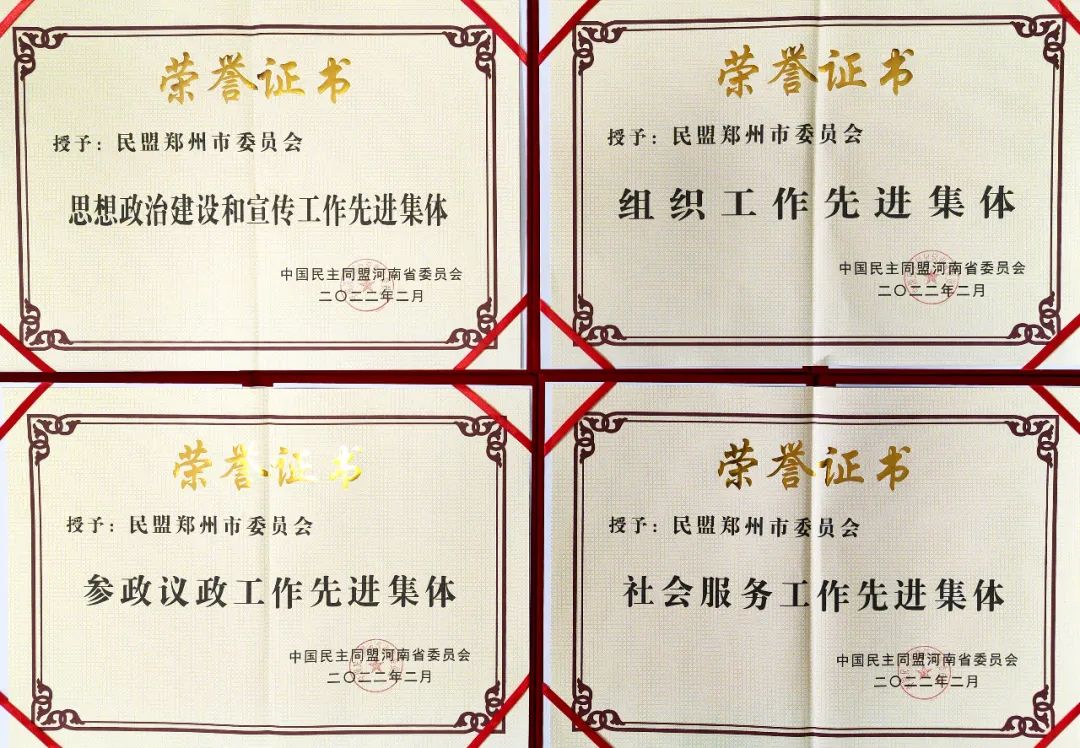 荣誉证书
授予：民盟郑州市委员会
思想政治建设和宣传工作先进集体
中国民主同盟河南省委员会
二〇二二年二月
荣誉证书
授予：民盟郑州市委员会
组织工作先进集体
中国民主同盟河南省委员会
二〇二二年二月
荣誉证书
授予：民盟郑州市委员会
参政议政工作先进集体
中国民主同盟河南省委员会
二〇二二年二月
荣誉证书
授予：民盟郑州市委员会
社会服务工作先进集体
中国民主同盟河南省委员会
二〇二二年二月